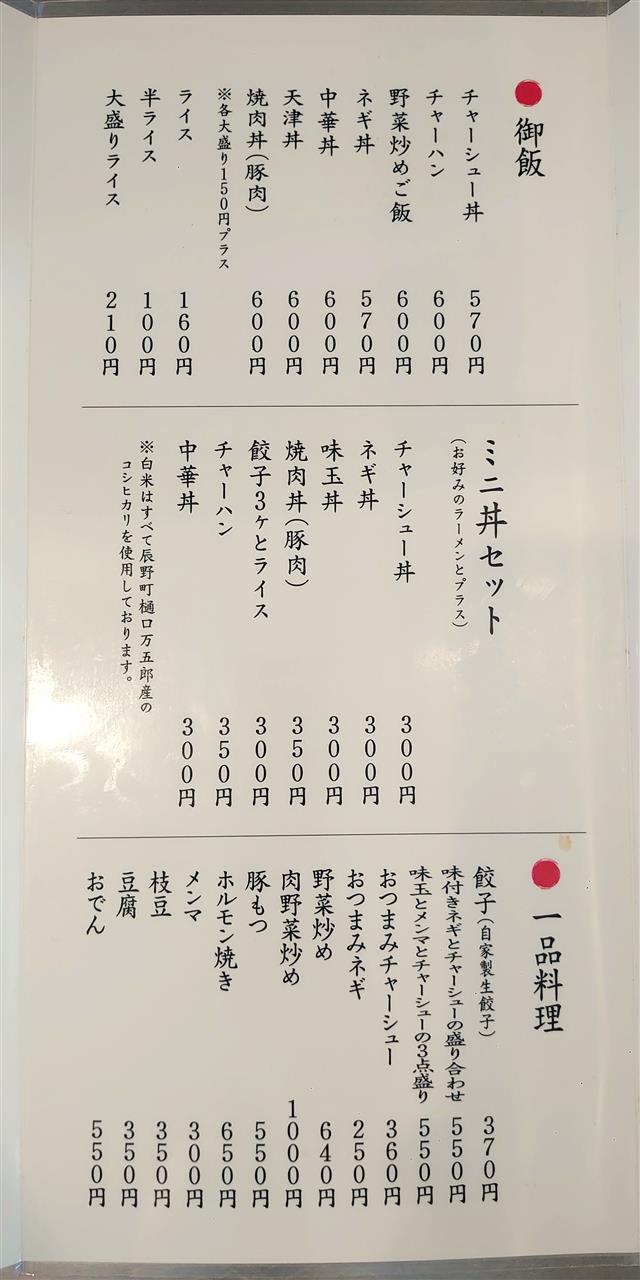 御飯
チャーシュー丼 570円
チャーハン 600円
野菜炒めご飯 600円
ネギ丼 570円
中華丼 600円
天津丼 600円
焼肉丼(豚肉) 600円
※各大盛り150円プラス
ライス 160円
半ライス 100円
大盛りライス 210円
ミニ丼セット
(お好みのラーメンとプラス)
チャーシュー丼 300円
ネギ丼 300円
味玉丼 300円
焼肉丼(豚肉) 350円
餃子3ヶとライス 300円
チャーハン 350円
中華丼 300円
※白米はすべて辰野町樋口万五郎産の
コシヒカリを使用しております。
一品料理
餃子(自家製生餃子) 370円
味付きネギとチャーシューの盛り合わせ 550円
味玉とメンマとチャーシューの3点盛り 550円
おつまみチャーシュー 360円
おつまみネギ 250円
野菜炒め 640円
肉野菜炒め 1000円
豚もつ 550円
ホルモン焼き 650円
メンマ 300円
枝豆 350円
豆腐 350円
おでん 550円